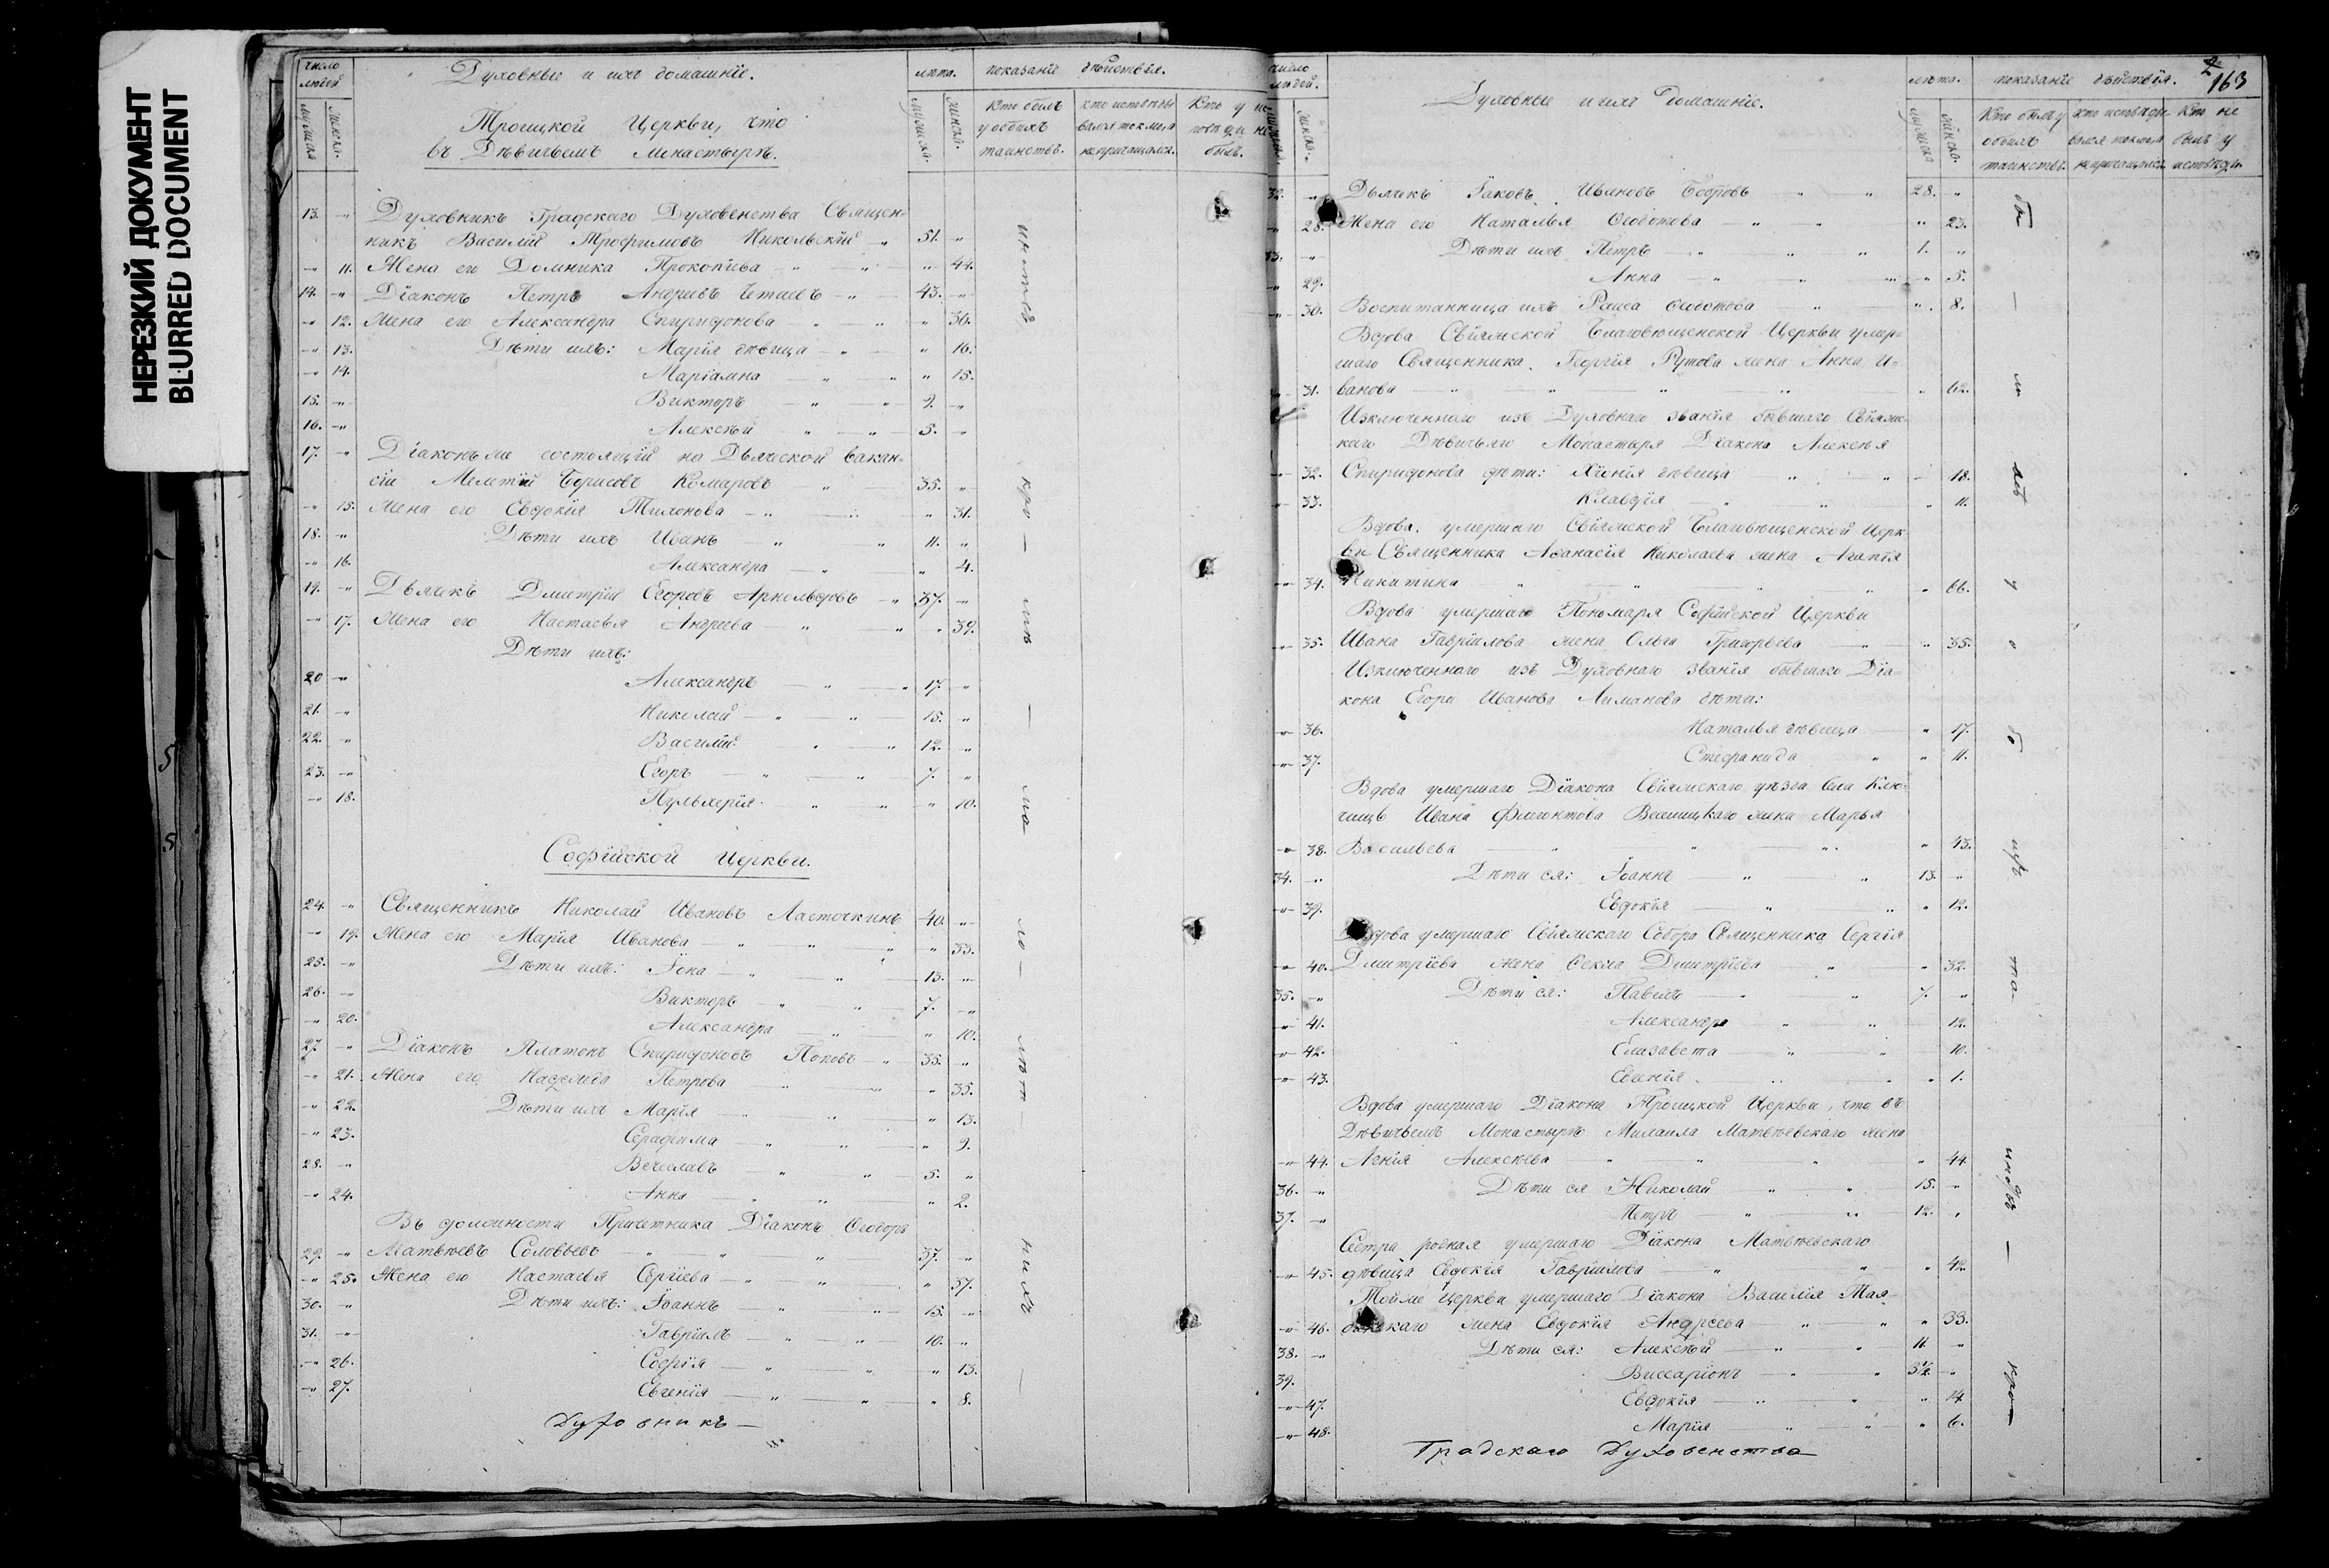 НЕРЕЗКИЙ ДОКУМЕНТ
BLURRED DOCUMENT
число людей
Духовные и ихъ домашніе.
лѣта.
показаніе дѣйствія.
мужеска
женска.
Троицкой Церкви, что
въ Дѣвичьемъ Монастырѣ.
мужеска.
женска.
Кто былъ у обоихъ таинствъ.
кто исповѣдывался токмо, а не причащался.
Кто у исповѣди не былъ.
13. -" Духовникъ Градскаго Духовенства Священ-
никъ Василій Трофимовъ Никольскій -" 51. -"
-" 11. Жена его Домника Прокопіева -" -" 44.
14. -" Діаконъ Петръ Андреевъ -" 43. -"
-" 12. Жена его Александра Спиридонова " " 36.
-" 13. Дѣти ихъ: Марія дѣвица -" " 16.
-" 14. Маріамна " " 15.
15. -" Викторъ " 9. -"
16. -" Алексѣй " 5. -"
17. -" Діаконъ же состоящій на Дьяческой вакан-
сіи Мелетій Борисовъ Комаровъ " 35. "
-" 15. Жена его Евдокія Тихонова -" " 31.
18. -" Дѣти ихъ Иванъ " 11. "
-" 16. Александра " " 4.
19. -" Дьячекъ Дмитрій Егоровъ Арнольдовъ -" 37. -"
-" 17. Жена его Настасья Андреева " " 39.
Дѣти ихъ:
20 -" Александръ " 17. -"
21. -" Николай -" 15. -"
22. -" Василій " 12. -"
23. -" Егоръ " 7. "
-" 18. Пульхерія " " 10.
Софійской Церкви.
24. -" Священникъ Николай Ивановъ Ласточкинъ 40. -"
-" 19. Жена его Марія Ивановна " " 33.
25. -" Дѣти ихъ: -" 13. -"
26. -" Викторъ -" 7. -"
-" 20. Александра " " 10.
27. -" Діаконъ Платонъ Спиридоновъ Поповъ -" 35. "
-" 21. Жена его Надежда Петрова " " 35.
-" 22. Дѣти ихъ Марія " " 13.
-" 23. Серафима " " 9.
28. -" Вечеславъ " 5. "
-" 24. Анна " " 2.
Въ должности Причетника Діаконъ Ѳеодоръ
29. -" Матвѣевъ Соловьевъ " 37. -"
-" 25. Жена его Настасья Сергіева -" " 37.
30. -" Дѣти ихъ: Іоаннъ " 15. -"
31. -" Гавріилъ -" 10. "
-" 26. Софія -" " 13.
-" 27. Евгенія " " 8.
Духовникъ
163
число людей.
Духовные и ихъ домашніе.
лѣта.
показаніе дѣйствія.
женска.
мужеска
женска.
Кто былъ у обоихъ таинствъ.
кто исповѣдывался токмо не причащался.
Кто не былъ у исповѣди.
32. " Дьячекъ Іаковъ Ивановъ Бобровъ " " 28. "
" 28. Жена его Наталья Ѳедотова " " 23.
33. -" Дѣти ихъ Петръ " 1. "
" 29. Анна " " 5.
" 30. Воспитанница ихъ Раиса Ѳедотова " " 8.
Вдова Свіяжской Благовѣщенской Церкви умер-
шаго Священника Георгія Рутова жена Анна И-
-" 31. ванова " " 62.
Изключеннаго изъ Духовнаго званія бывшаго Свіяжс-
каго Дѣвичьяго Монастыря Діакона Алексѣя
-" 32. Спиридонова дѣти: Хіонія дѣвица " - 18.
-" 33. Клавдія " " 11.
Вдова умершаго Свіяжской Благовѣщенской Церк-
ви Священника Аѳанасія Николаева жена Агапія
-" 34. Никитина " " 66.
Вдова умершаго Пономаря Софійской Церкви
-" 35. Ивана Гаврилова жена Ольга Григорьева " 35.
Изключеннаго изъ Духовнаго званія бывшаго Діа-
кона Егора Иванова Лиманова дѣти:
-" 36. Наталья дѣвица " 17.
-" 37. Стефанида " " 11.
Вдова умершаго Діакона Свіяжскаго уѣзда села Клю-
чищъ Ивана жена Марья
-" 38. Васильева " " 43.
34. -" Дѣти ея: Іоаннъ " 13. "
-" 39. Евдокія " " 12.
Вдова умершаго Свіяжскаго Собора Священника Сергія
-" 40. Дмитріева жена Ѳекла Дмитріева " 32.
35. -" Дѣти ея: Павелъ " 7. "
-" 41. Александра " 12.
-" 42. Елизавета " 10.
-" 43. " 1.
Вдова умершаго Діакона Троицкой Церкви, что въ
Дѣвичьемъ Монастырѣ Михаила Матвѣевскаго жена
-" 44. Агнія Алексѣева " " 44
36. -" Дѣти ея Николай " 15. "
37. -" Петръ " 12. "
Сестра родная умершаго Діакона Матвѣевскаго
-" 45. дѣвица Евдокія Гавриилова " " 42.
Тойже Церкви умершаго Діакона Василія
-" 46. жена Евдокія Андреева " " 33.
38. -" Дѣти ея: Алексѣй " 11. "
39. Виссаріонъ " 3½ -"
-" 47. Евдокія " " 14
-" 48. Марія " " 6.
Градскаго Духовенства